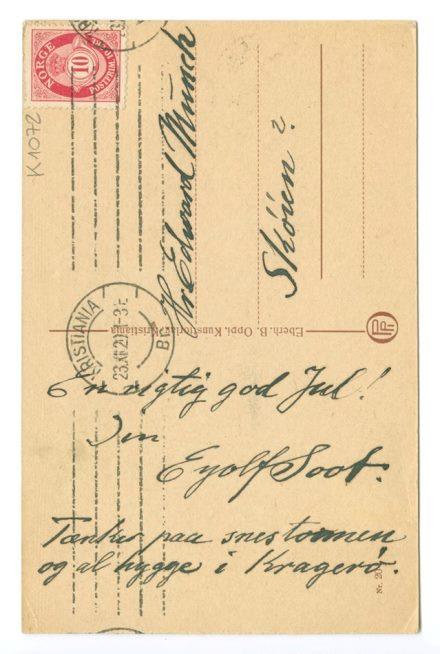 NORGE
10
POSTFRIM
K1072
Hr. Edvard Munch
Skøien?
KRISTIANIA
23.XII.20
BR
Eberh. B. Oppi, Kunstforlag, Kristiania
En rigtig god Jul!
Din
Eyolf Soot.
Tænker paa snestormen
og al hygge i Kragerø.